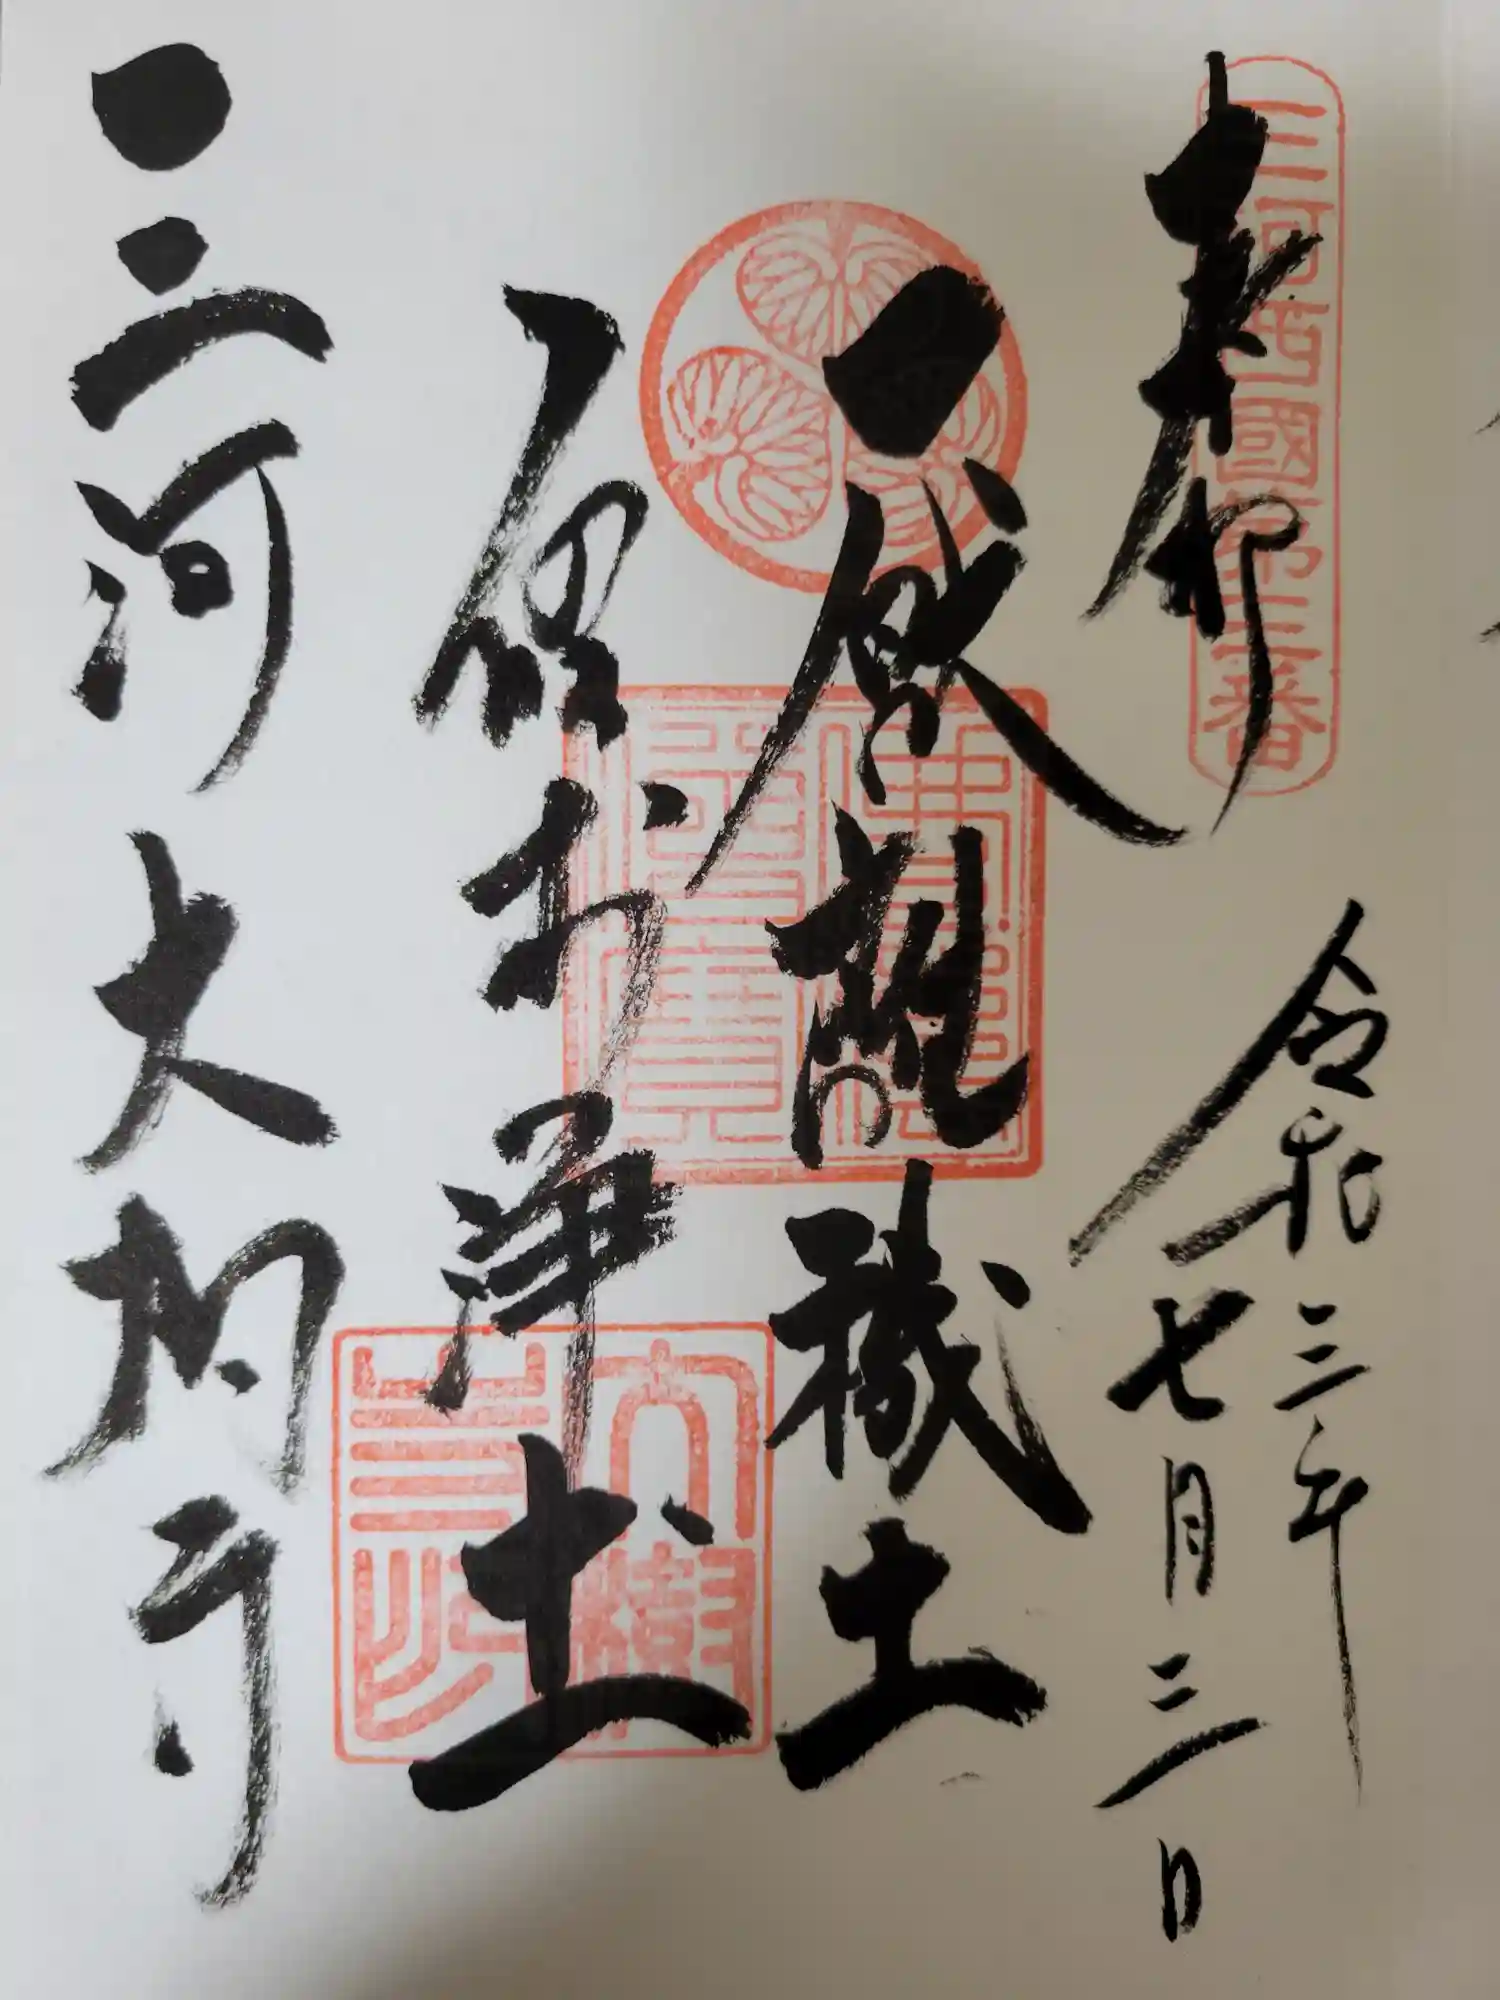 三河西國第三番
奉拝
令和三年
七月三日
厭離穢土
欣求浄土
三河大樹寺
大樹寺印